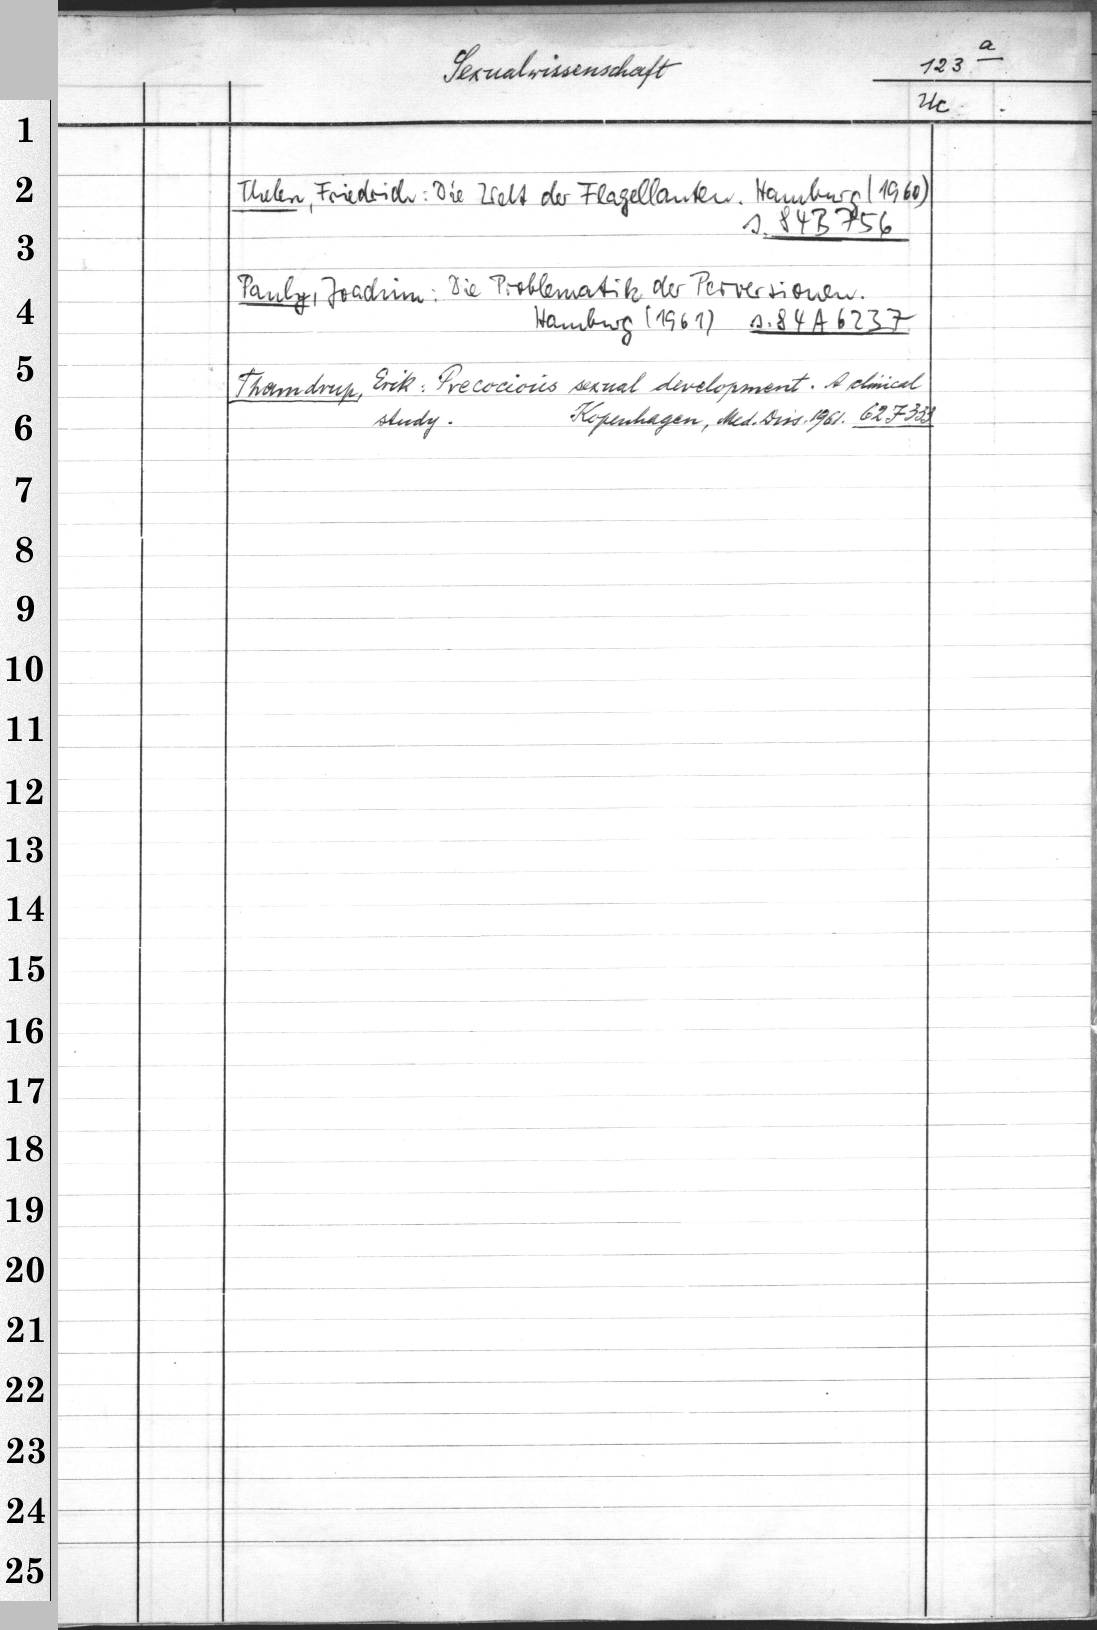 Sexualwissenschaft
123 a
Uc
1
2
Thelen, Friedrich: Die Welt der Flagellanten. Hamburg (1960)
s. 84 B 756
3
Pauly, Joachim: Die Problematik der Perversionen.
4
Hamburg (1961) s. 84 A 6237
5
Thamdrup, Erik: Precocious sexual development. A clinical
6
study. Kopenhagen, Med. Diss. 1961. 62 7333
7
8
9
10
11
12
13
14
15
16
17
18
19
20
21
22
23
24
25